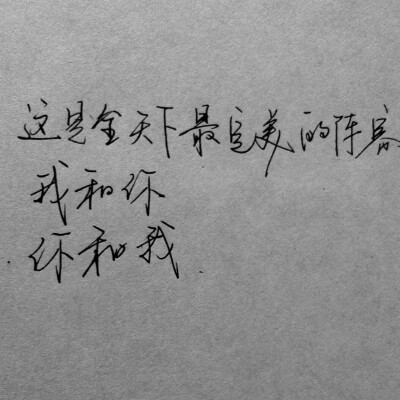 这是全天下最完美的阵容
我和你
你和我.